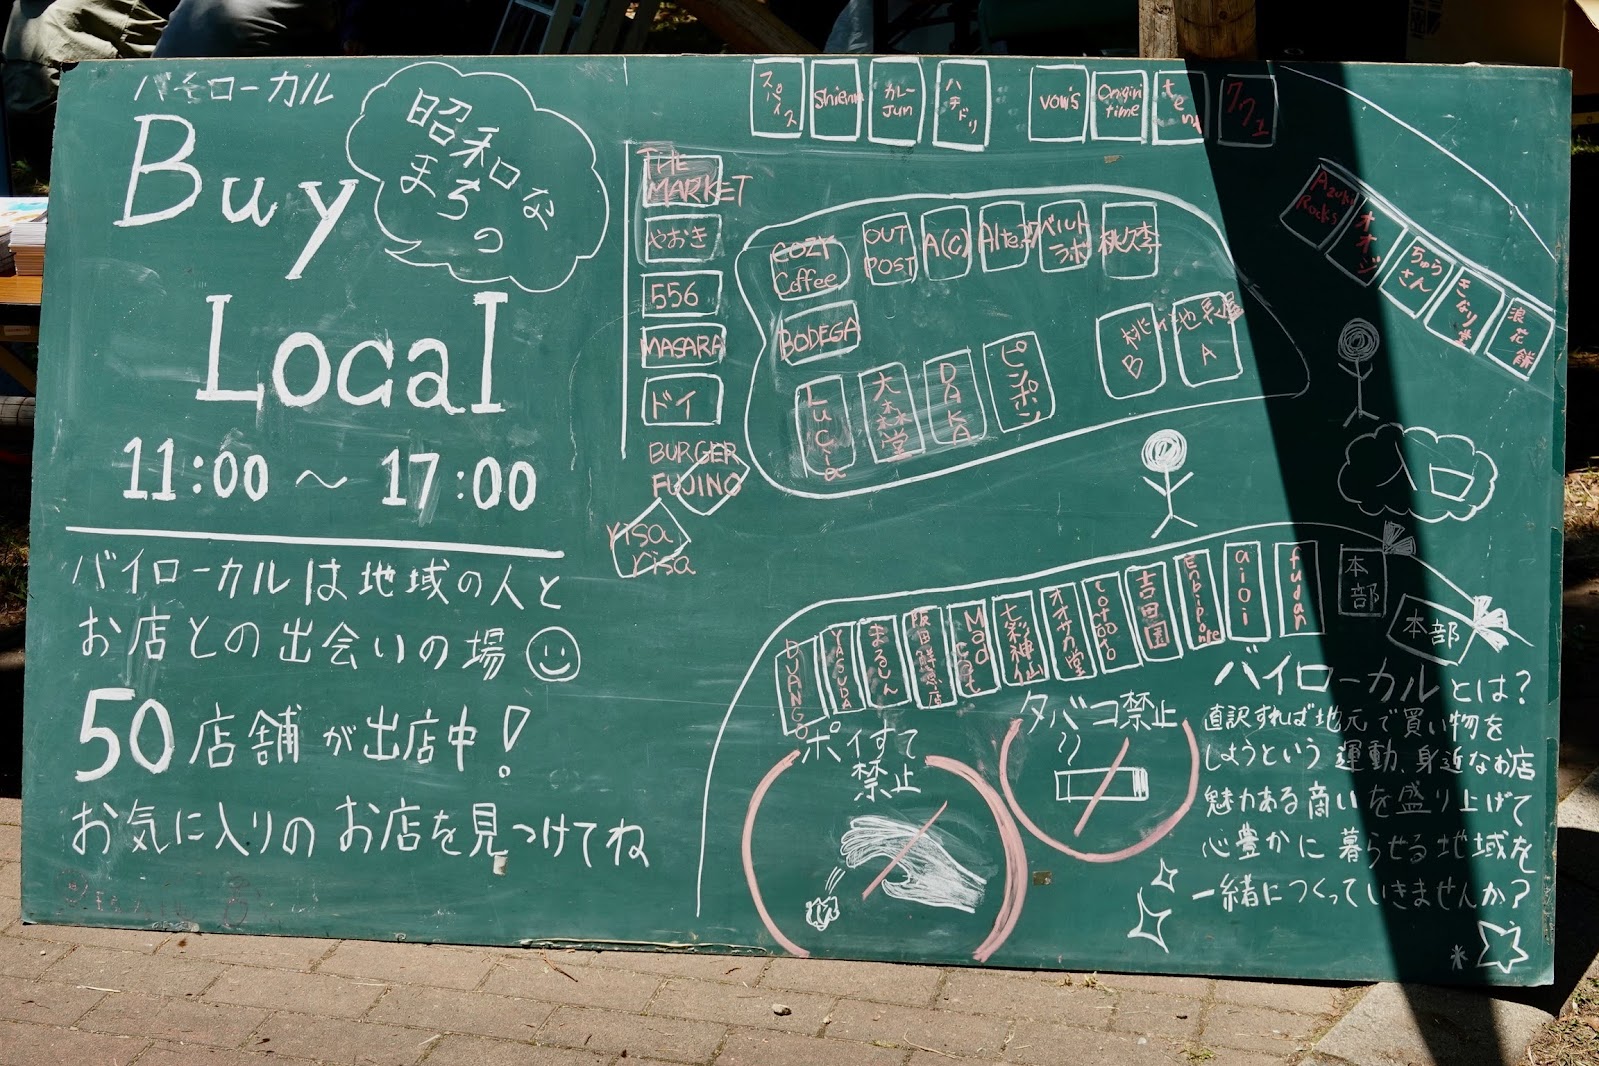 バイローカル
Buy
Local
昭和な
まちの
11:00 〜 17:00
バイローカルは地域の人と
お店との出会いの場
50店舗が出店中!
お気に入りのお店を見つけてね
スパイス
カレー
Jun
ハチドリ
vow's
Origin
time
tent
クワエ
THE
MARKET
やおき
556
MASARA
ドイ
BURGER
FUJINO
risa
risa
COZY
Coffee
OUT
POST
A(C)
ベルト
ラボ
桃久李
BODEGA
Lucia
大森堂
DAKA
ピンポン
桃
B
長屋
A
Azuki
Rocks
オオージ
ちゅう
さん
きなり堂
浪花餅
入口
DUANGO
YASUDA
まるしん
阪田鮮魚店
Mad
cat
七彩神仙
オオサカ堂
cotoano
吉田園
aioi
fudan
本部
本部
ポイすて
禁止
タバコ禁止
バイローカルとは?
直訳すれば地元で買い物を
しようという運動、身近なお店
魅力ある商いを盛り上げて
心豊かに暮らせる地域を
一緒につくっていきませんか?